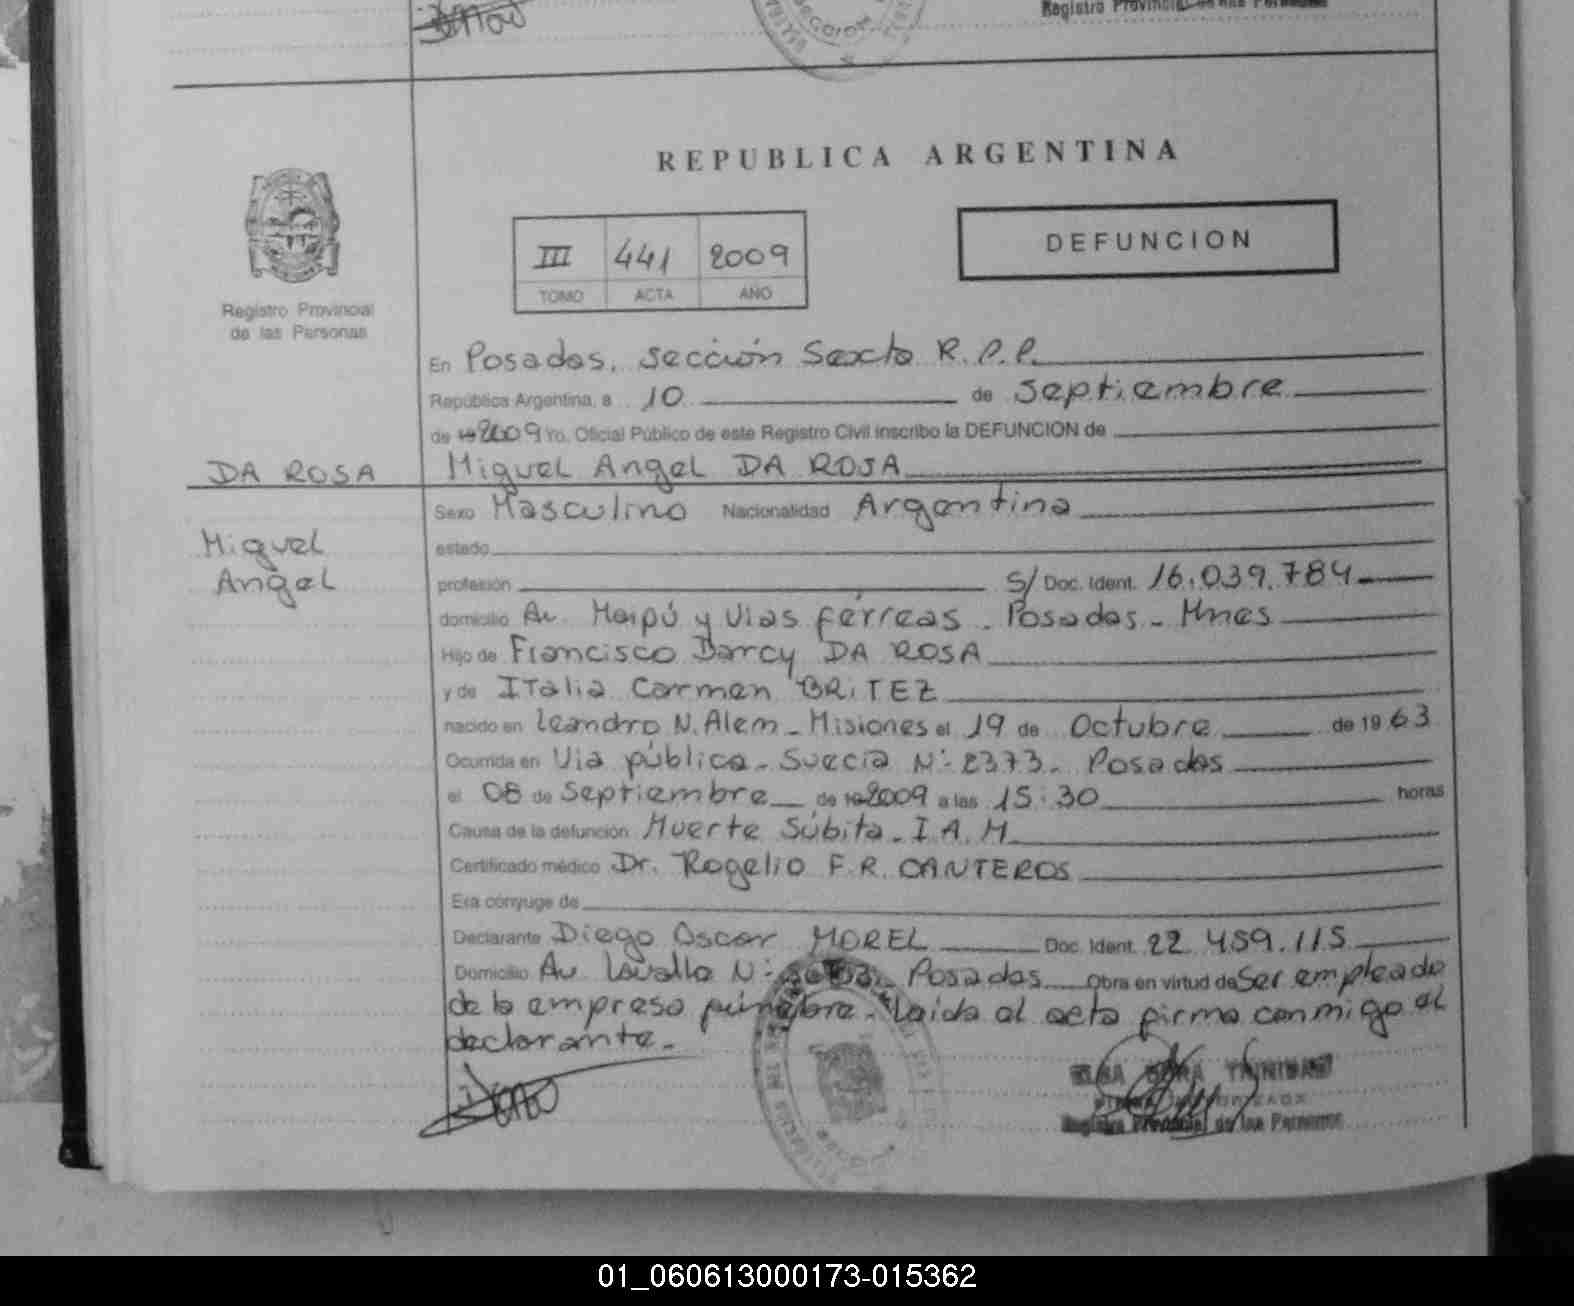 Registro Provincial de las Personas
REPUBLICA ARGENTINA
III 441 2009
TOMO ACTA AÑO
DEFUNCION
Registro Provincial
de las Personas
En Posadas, sección Sexta R.P.P.
República Argentina, a 10 de septiembre
de 19 2009 Yo, Oficial Público de este Registro Civil inscribo la DEFUNCION de
DA ROSA
Miguel Angel DA ROSA
Sexo Masculino Nacionalidad Argentina
Miguel
Angel
estado
profesión S/ Doc. Ident. 16.039.784
domicilio Av. Maipú y Vias férreas - Posadas - Mnes
Hijo de Francisco Darcy DA ROSA
y de Italia Carmen BRITEZ
nacido en Leandro N. Alem - Misiones el 19 de Octubre de 1963
Ocurrida en Via pública - Suecia N: 2373 - Posadas
el 08 de septiembre de 19 2009 a las 15:30 horas
Causa de la defunción Muerte Súbita - I.A.M
Certificado médico Dr. Rogelio F.R. CANTEROS
Era cónyuge de
Declarante Diego Oscar MOREL Doc. Ident. 22.459.115
Domicilio Av. Lavalle N: Posadas Obra en virtud de Ser empleado
de la empresa fúnebre - Leída el acta firma conmigo el
declarante -
TRINIDAD
Registro Provincial de las Personas
01_060613000173-015362